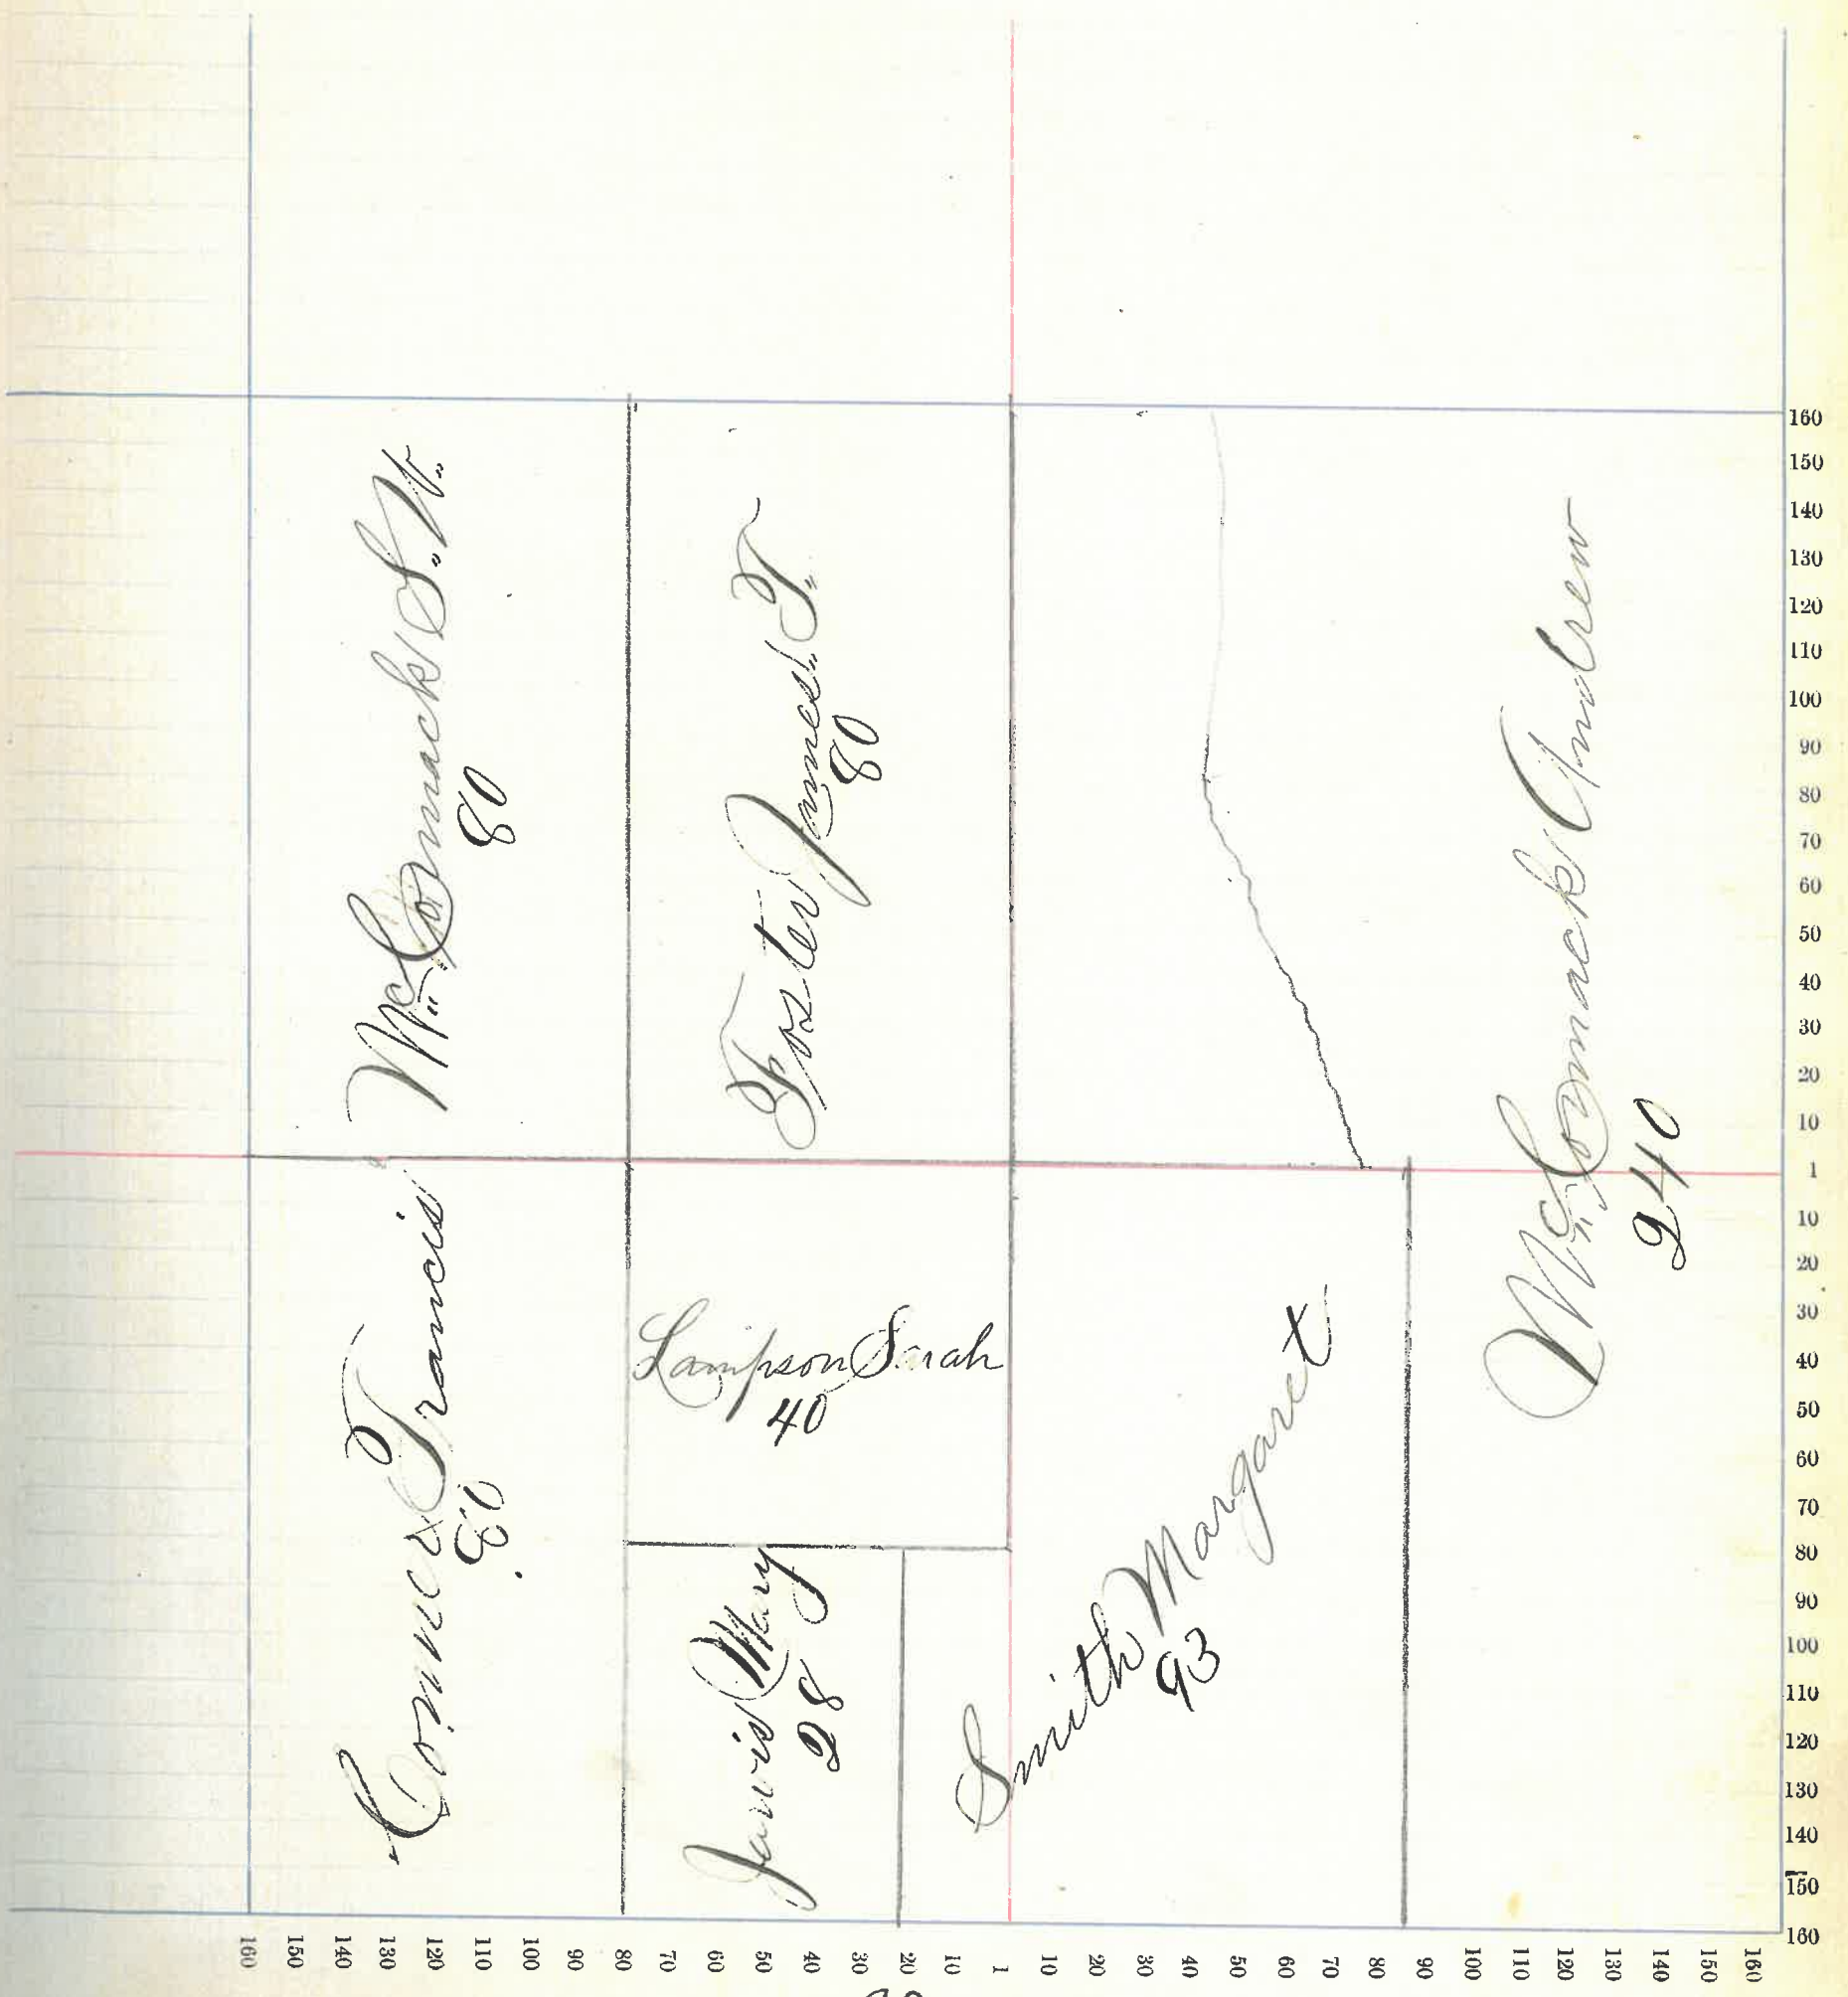 Mc.Cormack S.W.
80
Foster James T.
80
Mc.Comack Andrew
240
Conner Francis
80
Lampson Sarah
40
Jarvis Mary
28
Smith Margaret
93
160
150
140
130
120
110
100
90
80
70
60
50
40
30
20
10
1
10
20
30
40
50
60
70
80
90
100
110
120
130
140
150
160
160 150 140 130 120 110 100 90 80 70 60 50 40 30 20 10 1 10 20 30 40 50 60 70 80 90 100 110 120 130 140 150 160